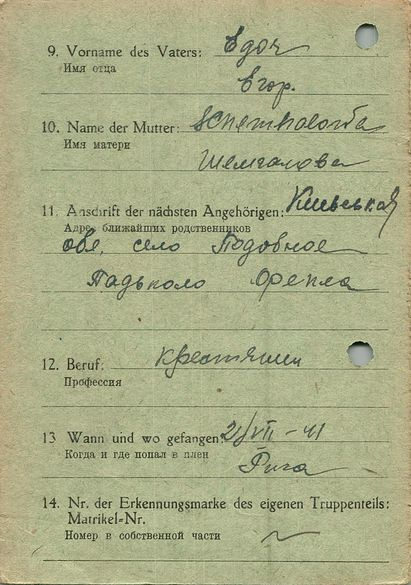 9. Vorname des Vaters: Едоч
Имя отца
Егор.
10. Name der Mutter: Schemhalowa
Имя матери
Шемгалова
11. Anschrift der nächsten Angehörigen:
Адрес ближайших родственников
обл. село Подовное
12. Beruf: крестянин
Профессия
13 Wann und wo gefangen: 21/VII-41
Когда и где попал в плен
Рига
14. Nr. der Erkennungsmarke des eigenen Truppenteils:
Matrikel-Nr.
Номер в собственной части